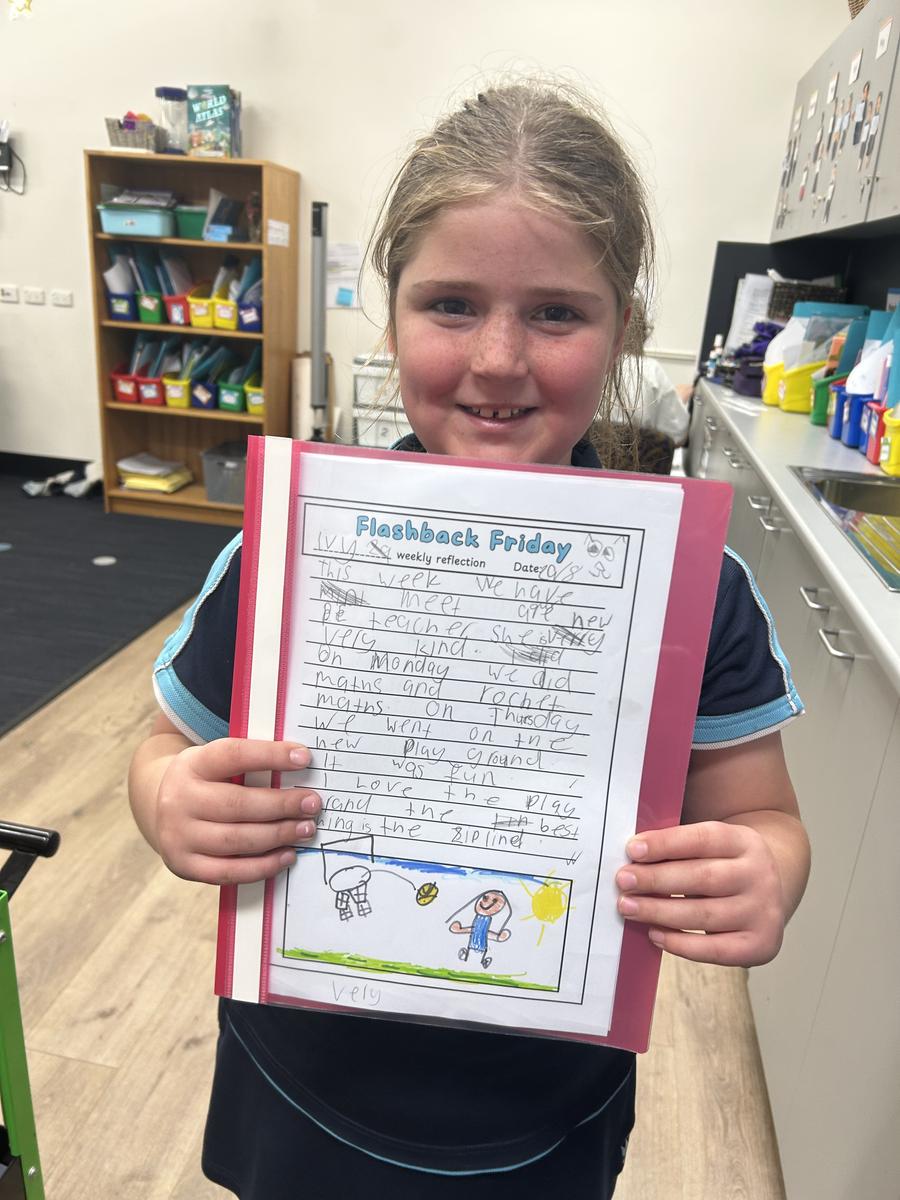 WORLD
ATLAS
Flashback Friday
Ivy
weekly reflection Date: 10/8
This week we have
meet are new
PE teacher she is
very kind.
on Monday we did
maths and rocket
maths. on Thursday
we went on the
new play ground.
It was fun.
I Love the play
rand the best
hing is the zipline
very
2